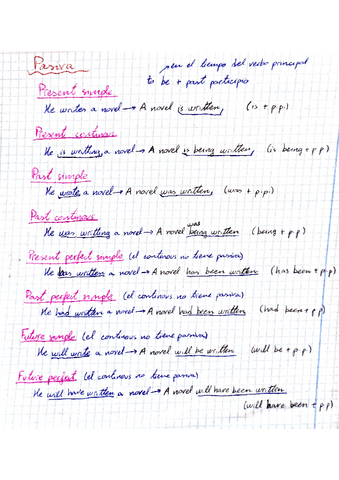 Pasiva
en el tiempo del verbo principal
to be + past participio
Present simple
He writes a novel → A novel is written. (is + p.p.)
Present continous
He is writting a novel → A novel is being written, (is being + p.p)
Past simple
He wrote a novel → A novel was written, (was + p.p.)
Past continous
was
He was writting a novel → A novel being written (being + p.p)
Present perfect simple (el continous no tiene pasiva)
He has written a novel → A novel has been written. (has been + p.p)
Past perfect simple (el continous no tiene pasiva)
He had written a novel → A novel had been written (had been + p.p)
Future simple (el continous no tiene pasiva)
He will write a novel → A novel will be written (will be + p.p)
Future perfect (el continous no tiene pasiva)
He will have written a novel → A novel will have been written
(will have been + p.p)